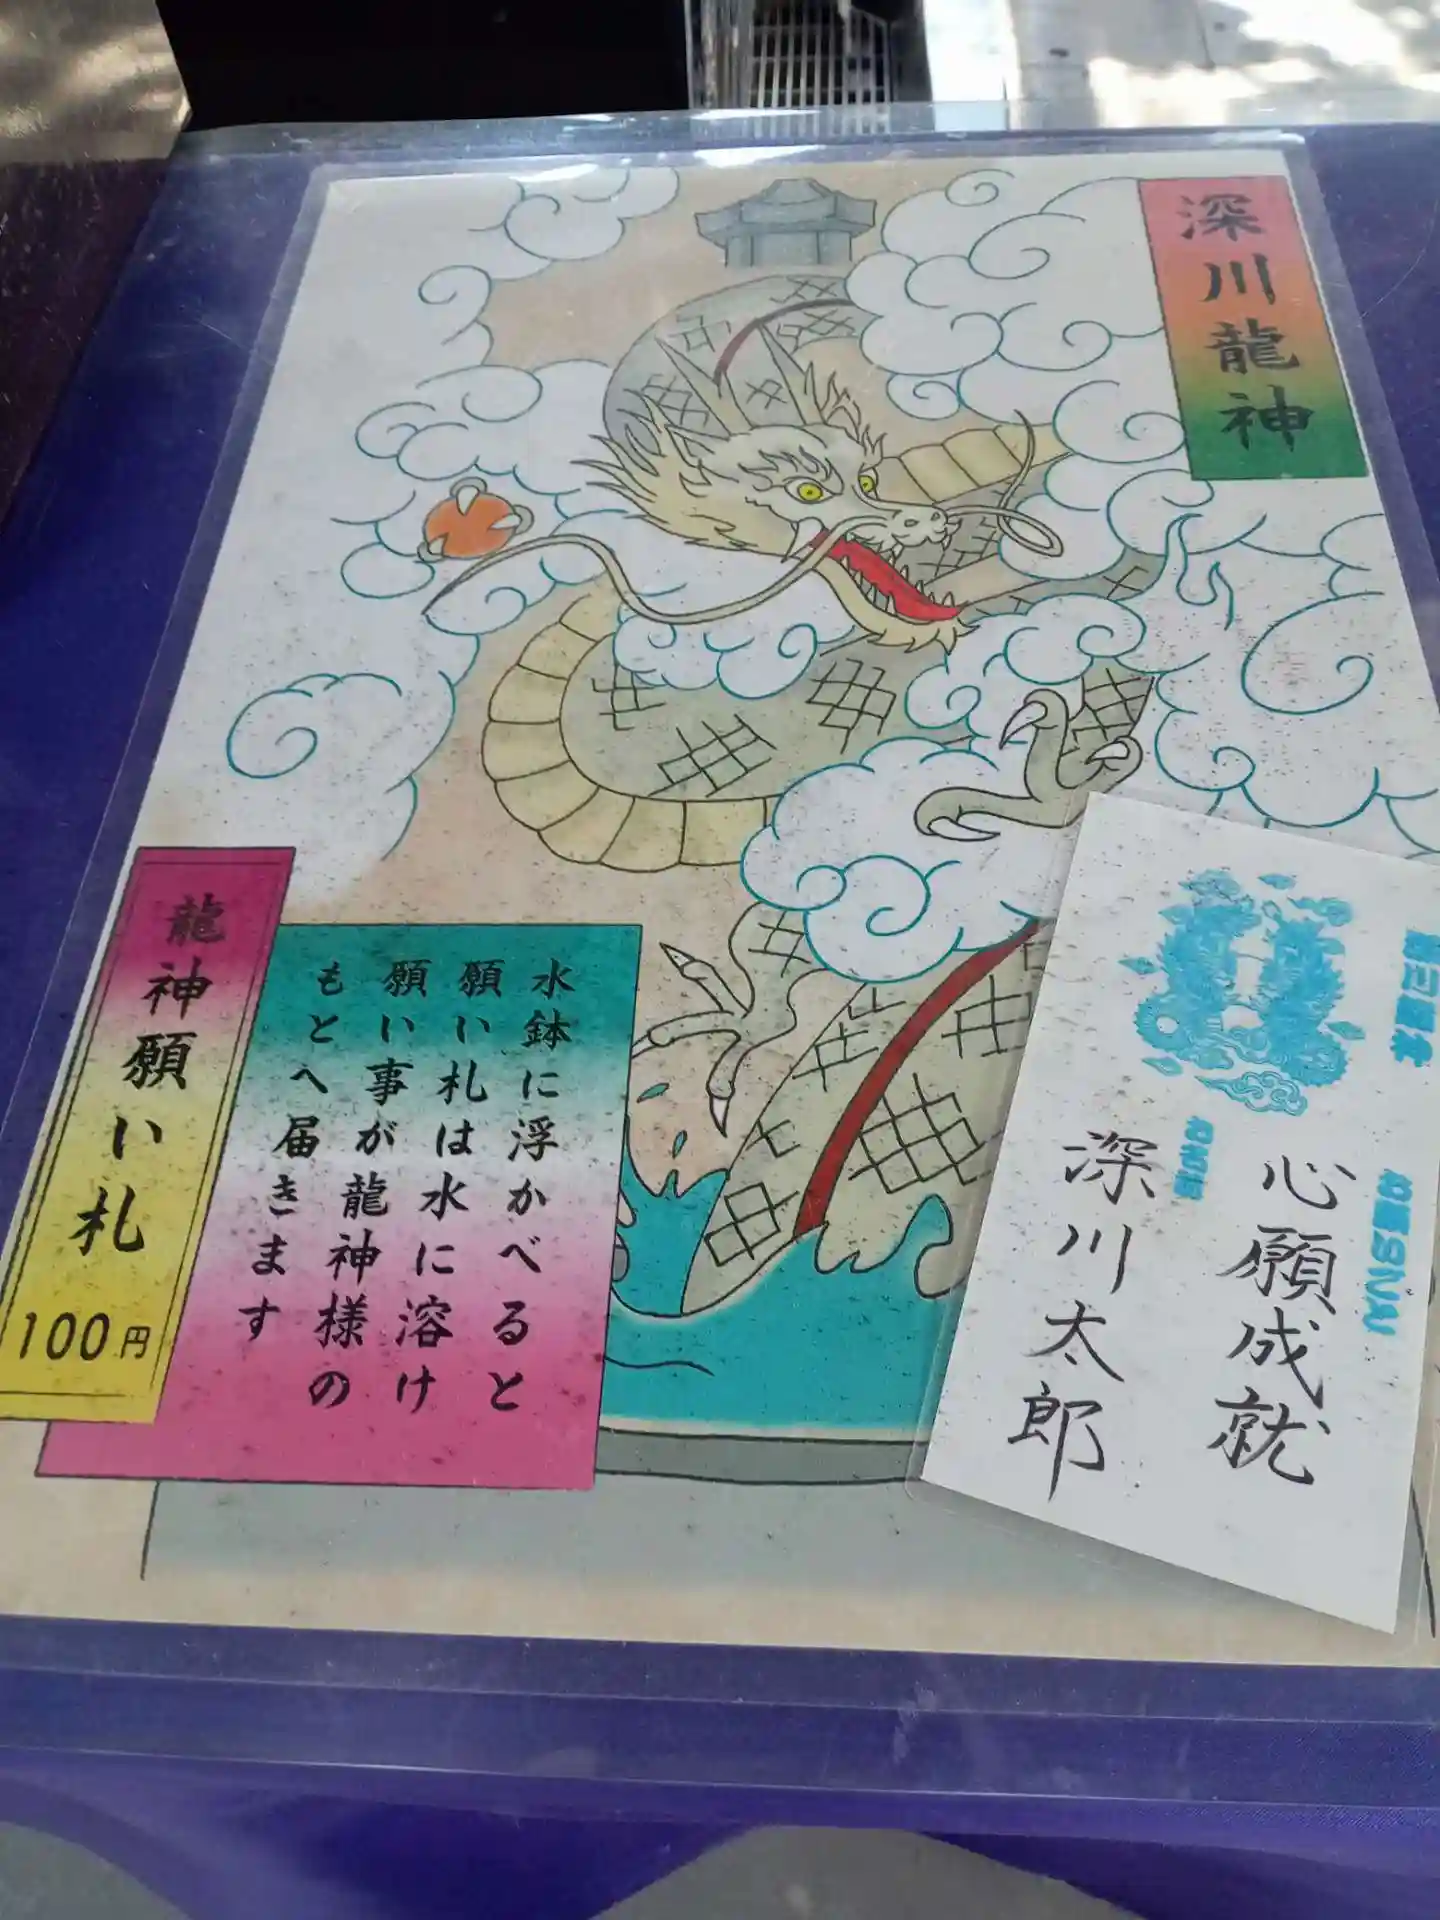 深川龍神
龍神願い札
100円
水鉢に浮かべると
願い札は水に溶け
願い事が龍神様の
もとへ届きます
心願成就
深川太郎